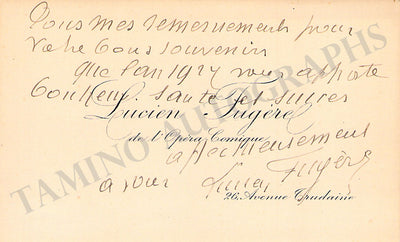 Tous mes remerciements pour
votre bon souvenir
que l'an 1927 vous apporte
Bonheur Santé
Lucien Fugère
de l'Opéra Comique
affectueusement
à vous Lucien Fugère
26, Avenue Trudaine
TAMINO AUTOGRAPHS